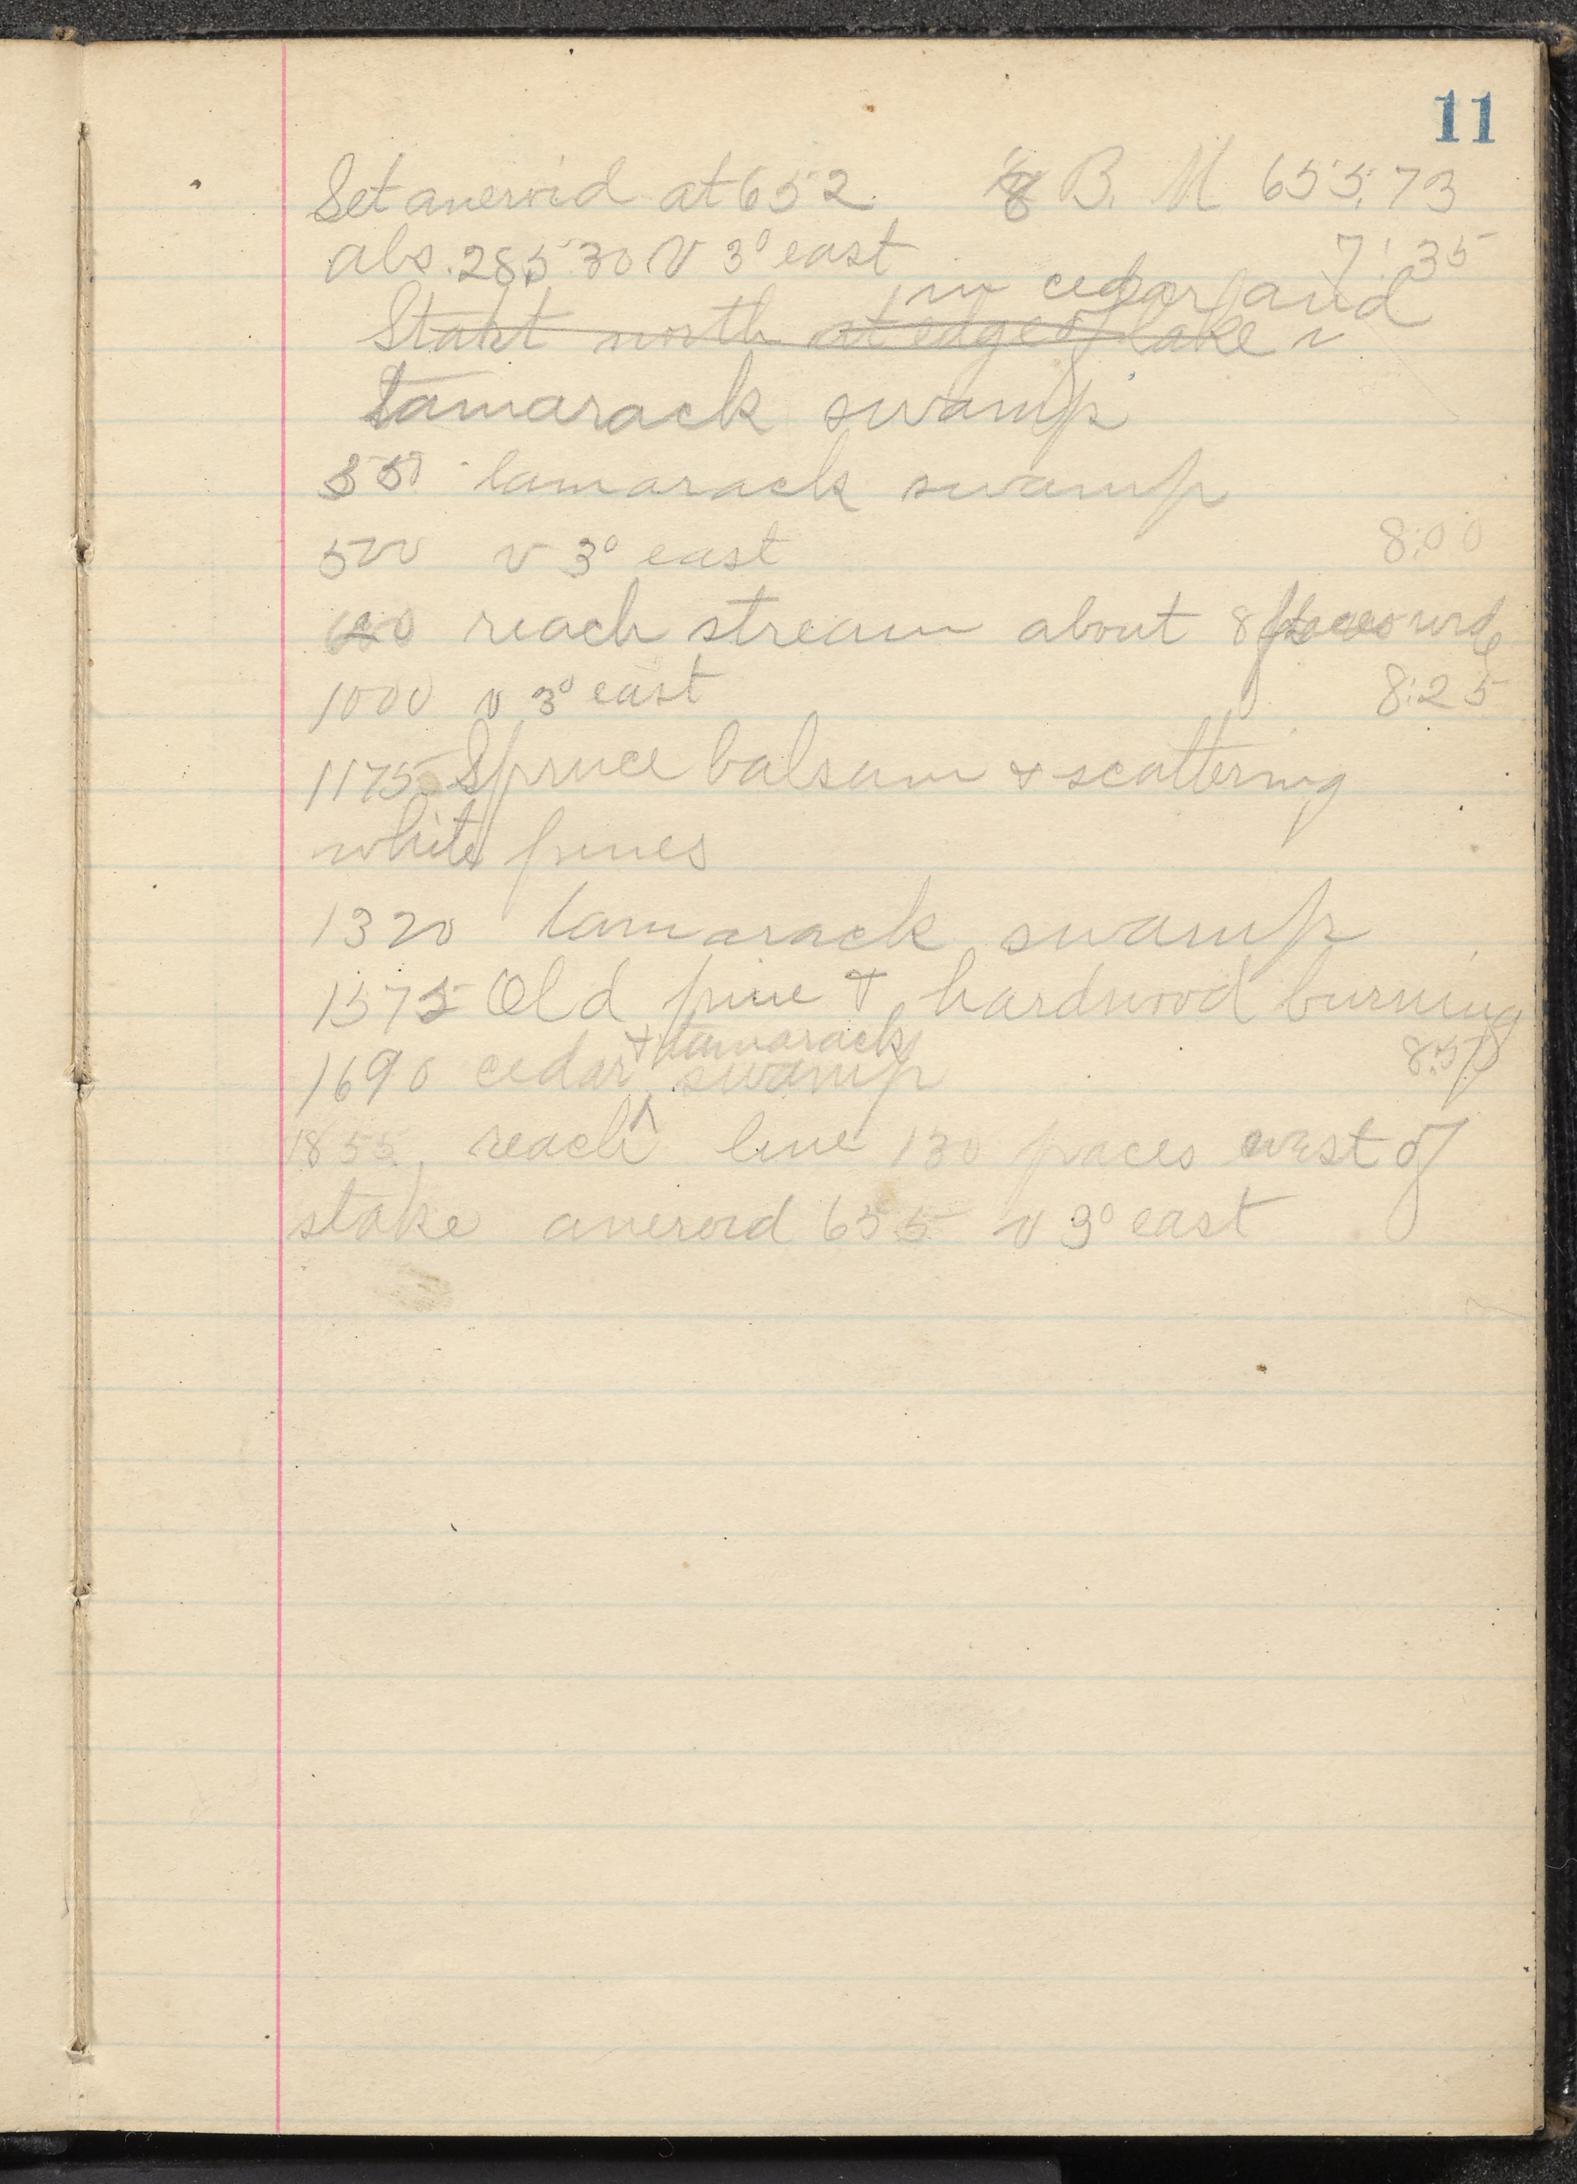 11
Set aneroid at 652. B. M 655.73
abs. 285.30 V 3° east 7:35
in cedar and
Start north at edge of lake
tamarack swamp
tamarack swamp
500 v 3° east 8:00
reach stream about 8 paces wide
1000 v 3° east 8:25
1175 Spruce balsam & scattering
white pines
1320 tamarack swamp
1575 Old pine & hardwood burning
& tamarack
1690 cedar ^ swamp
1855, reach line 130 paces west of
stake aneroid 655 v 3° east